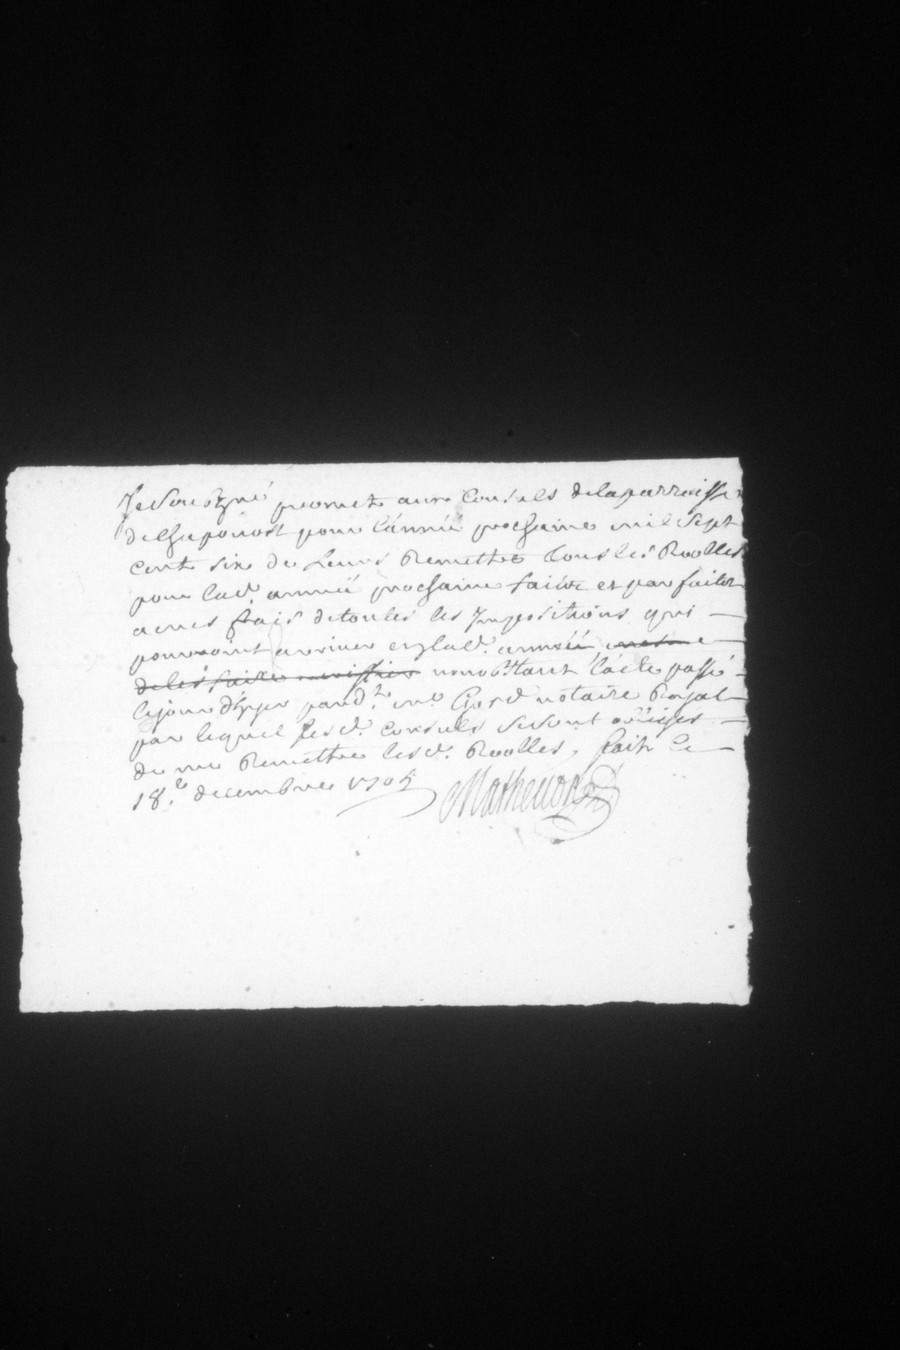 Je Soubzné promet aux Consuls de la parroisse
de Chaponost pour l'année prochaine mil sept
cent six de Leurs Remettre tous les Roolles
pour lad. année prochaine faits et parfaits
a mes frais de toutes les Impositions qui
pourroint arriver en lad. année mesme
de les faire nonobstant l'acte passé
le jour d'hyer pard. me notaire Royal
par lequel lesd. Consuls se sont obliges
de me Remettre lesd. Roolles, fait ce
18.e decembre 1705 Mathevon